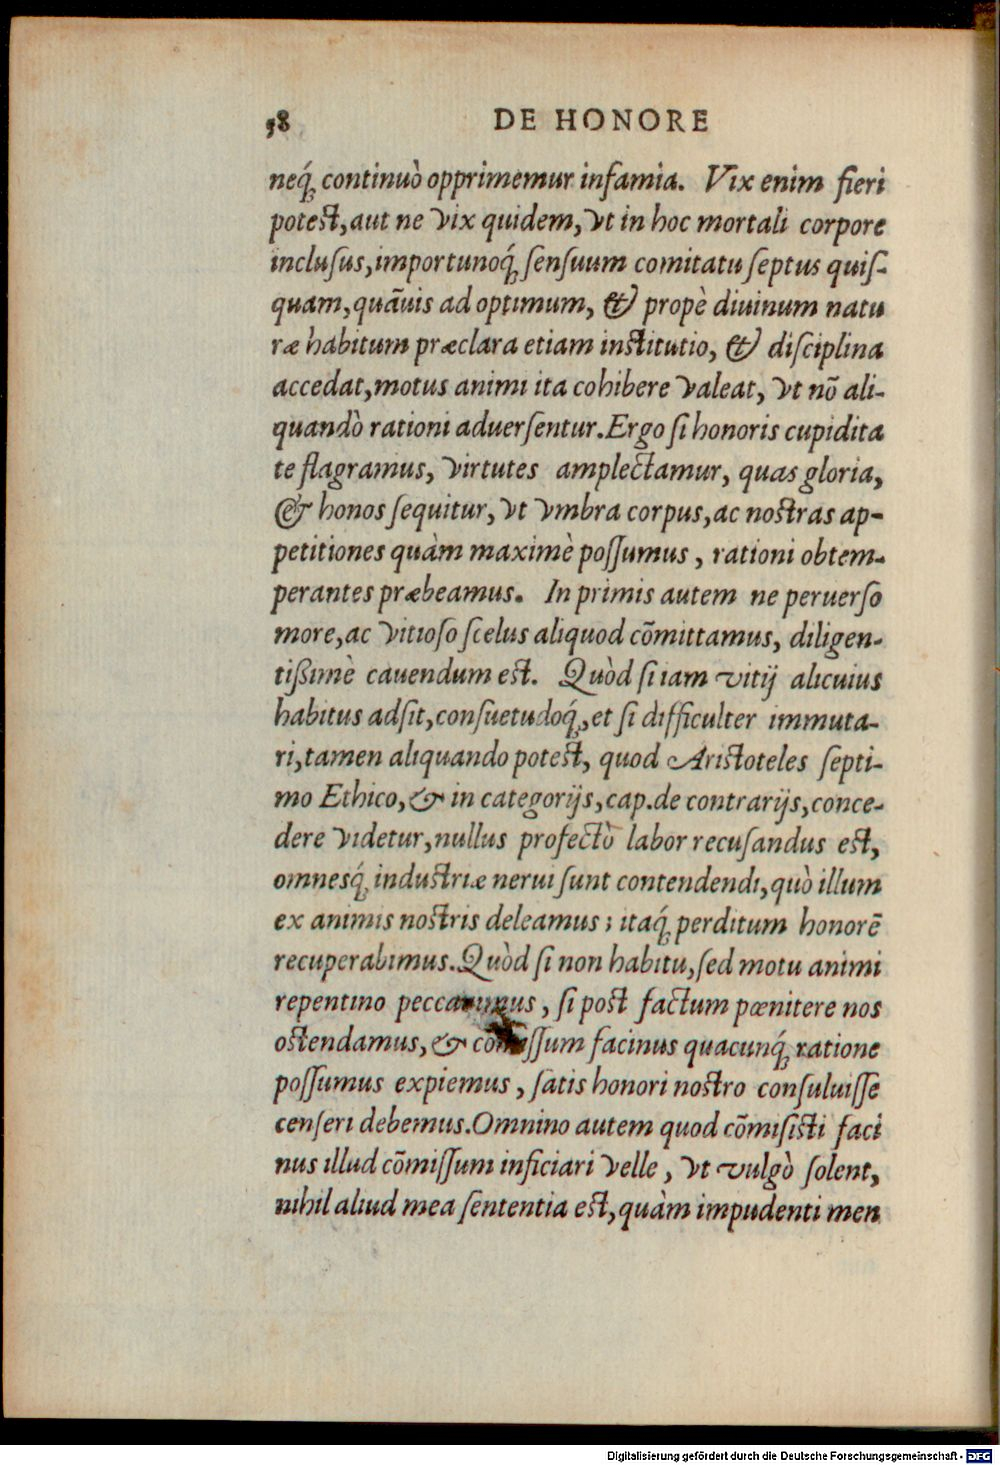 58 DE HONORE
neq́; continuò opprimemur infamia. Vix enim fieri
potest, aut ne vix quidem, vt in hoc mortali corpore
inclusus, importunoq́; sensuum comitatu septus quis-
quam, quāuis ad optimum, & propè diuinum natu
ræ habitum præclara etiam institutio, & disciplina
accedat, motus animi ita cohibere valeat, vt nō ali-
quandò rationi aduersentur. Ergo si honoris cupidita
te flagramus, virtutes amplectamur, quas gloria,
& honos sequitur, vt vmbra corpus, ac nostras ap-
petitiones quàm maximè possumus, rationi obtem-
perantes præbeamus. In primis autem ne peruerso
more, ac vitioso scelus aliquod cōmittamus, diligen-
tißimè cauendum est. Quòd si iam vitij alicuius
habitus adsit, consuetudoq́;, et si difficulter immuta-
ri, tamen aliquando potest, quod Aristoteles septi-
mo Ethico, & in categorijs, cap. de contrarijs, conce-
dere videtur, nullus profectò labor recusandus est,
omnesq́; industriæ nerui sunt contendendi, quò illum
ex animis nostris deleamus; itaq́; perditum honorē
recuperabimus. Quòd si non habitu, sed motu animi
repentino peccauimus, si post factum pœnitere nos
ostendamus, & cōmissum facinus quacunq́; ratione
possumus expiemus, satis honori nostro consuluisse
censeri debemus. Omnino autem quod cōmisisti faci
nus illud cōmissum inficiari velle, vt vulgò solent,
nihil aliud mea sententia est, quàm impudenti men
Digitalisierung gefördert durch die Deutsche Forschungsgemeinschaft - DFG